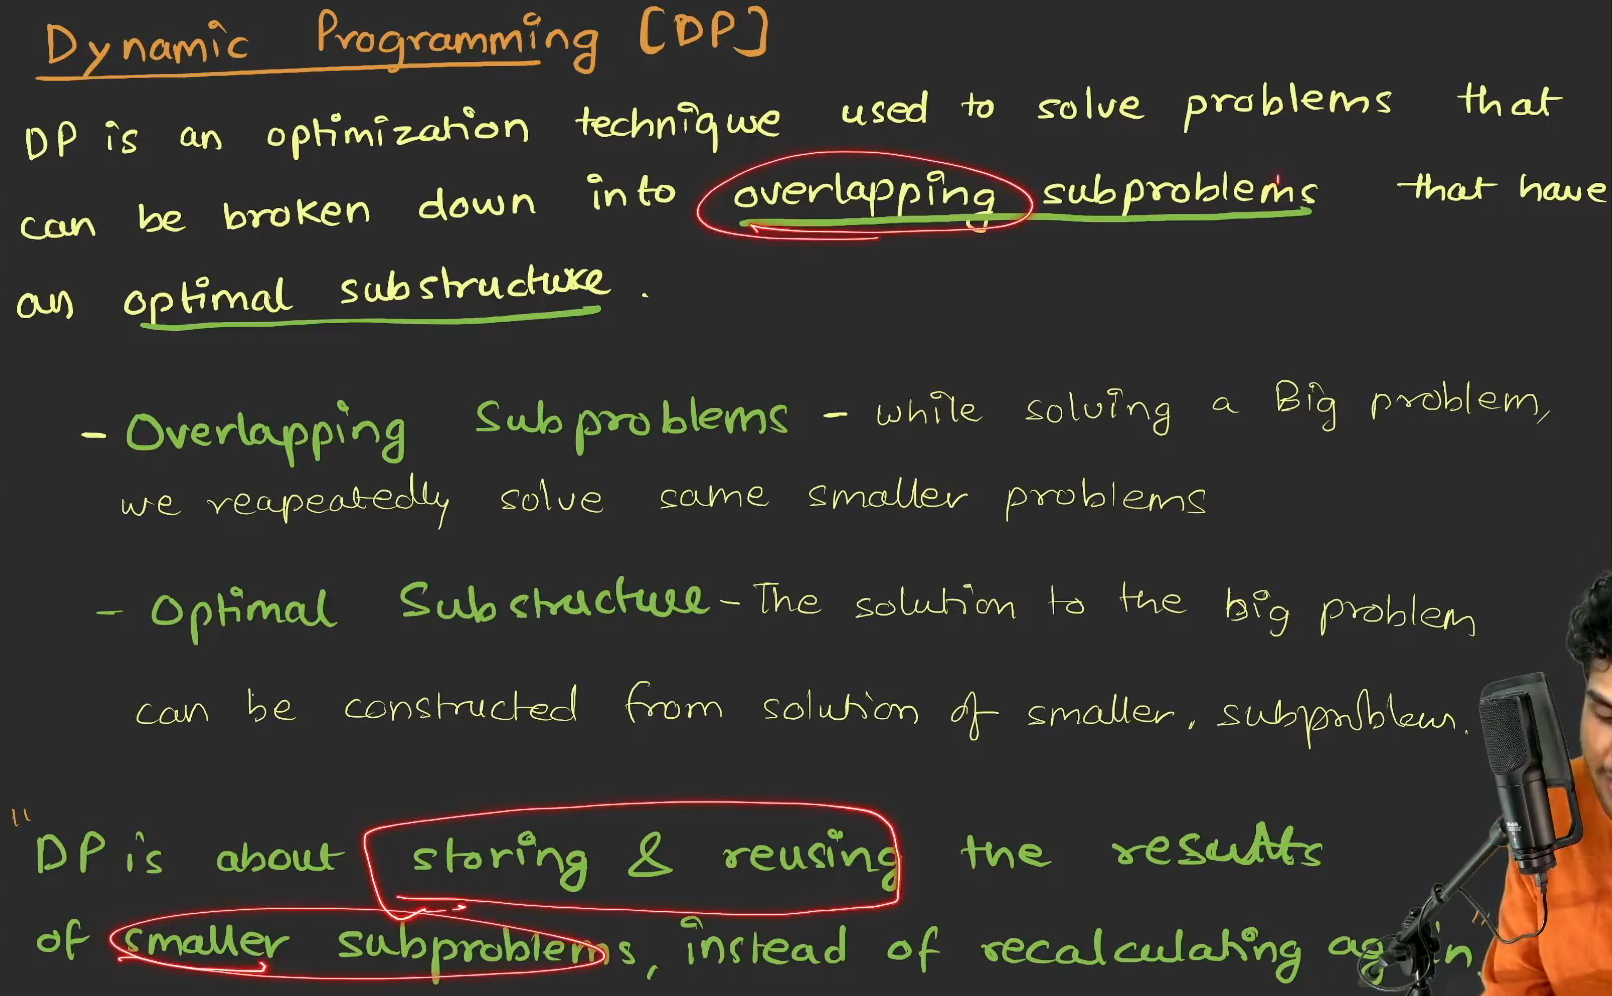 Dynamic Programming [DP]
DP is an optimization technique used to solve problems that
can be broken down into overlapping subproblems that have
an optimal substructure.
- Overlapping Subproblems - while solving a Big problem,
we reapeatedly solve same smaller problems
- Optimal Substructure - The solution to the big problem
can be constructed from solution of smaller, subproblem.
"DP is about storing & reusing the results
of smaller subproblems, instead of recalculating again"